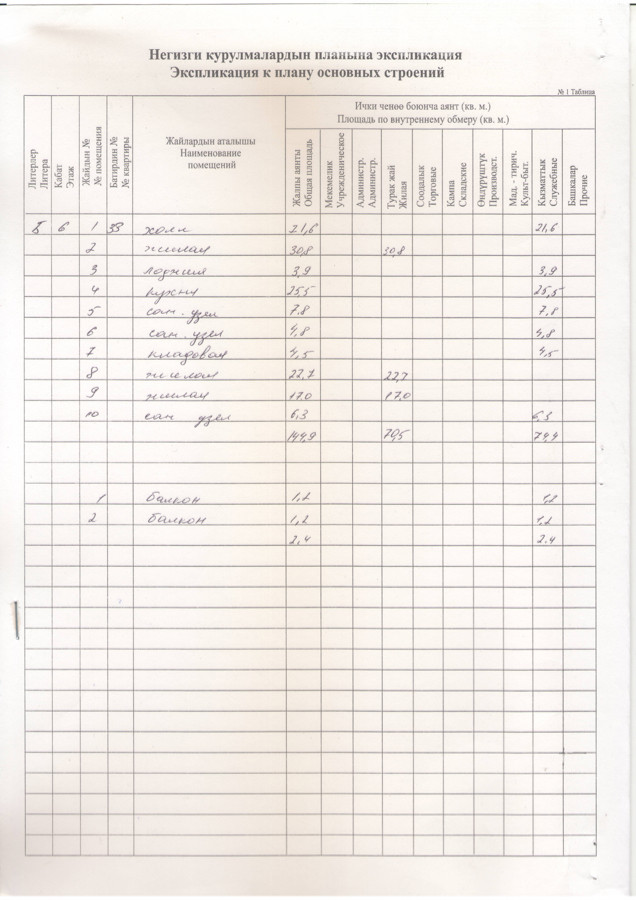 Негизги курулмалардын планына экспликация
Экспликация к плану основных строений
№ 1 Таблица
Литерлер Литера
Кабат Этаж
Жайдын № № помещения
Батирдин № № квартиры
Жайлардын аталышы
Наименование
помещений
Ички ченөө боюнча аянт (кв. м.)
Площадь по внутреннему обмеру (кв. м.)
Жалпы аянты Общая площадь
Мекемелик Учрежденическое
Администр. Администр.
Турак жай Жилая
Соодалык Торговые
Кампа Складские
Өндүрүштүк Производст.
Мад. - тирич. Культ-быт.
Кызматтык Служебные
Башкалар Прочие
Б 6 1 33 холл 21,6 21,6
2 жилая 30,8 30,8
3 лоджия 3,9 3,9
4 кухня 25,5 25,5
5 сан. узел 7,8 7,8
6 сан. узел 4,8 4,8
7 кладовая 4,5 4,5
8 жилая 22,7 22,7
9 жилая 17,0 17,0
10 сан узел 6,3 6,3
144,9 70,5 74,4
1 балкон 1,2 1,2
2 балкон 1,2 1,2
2,4 2,4